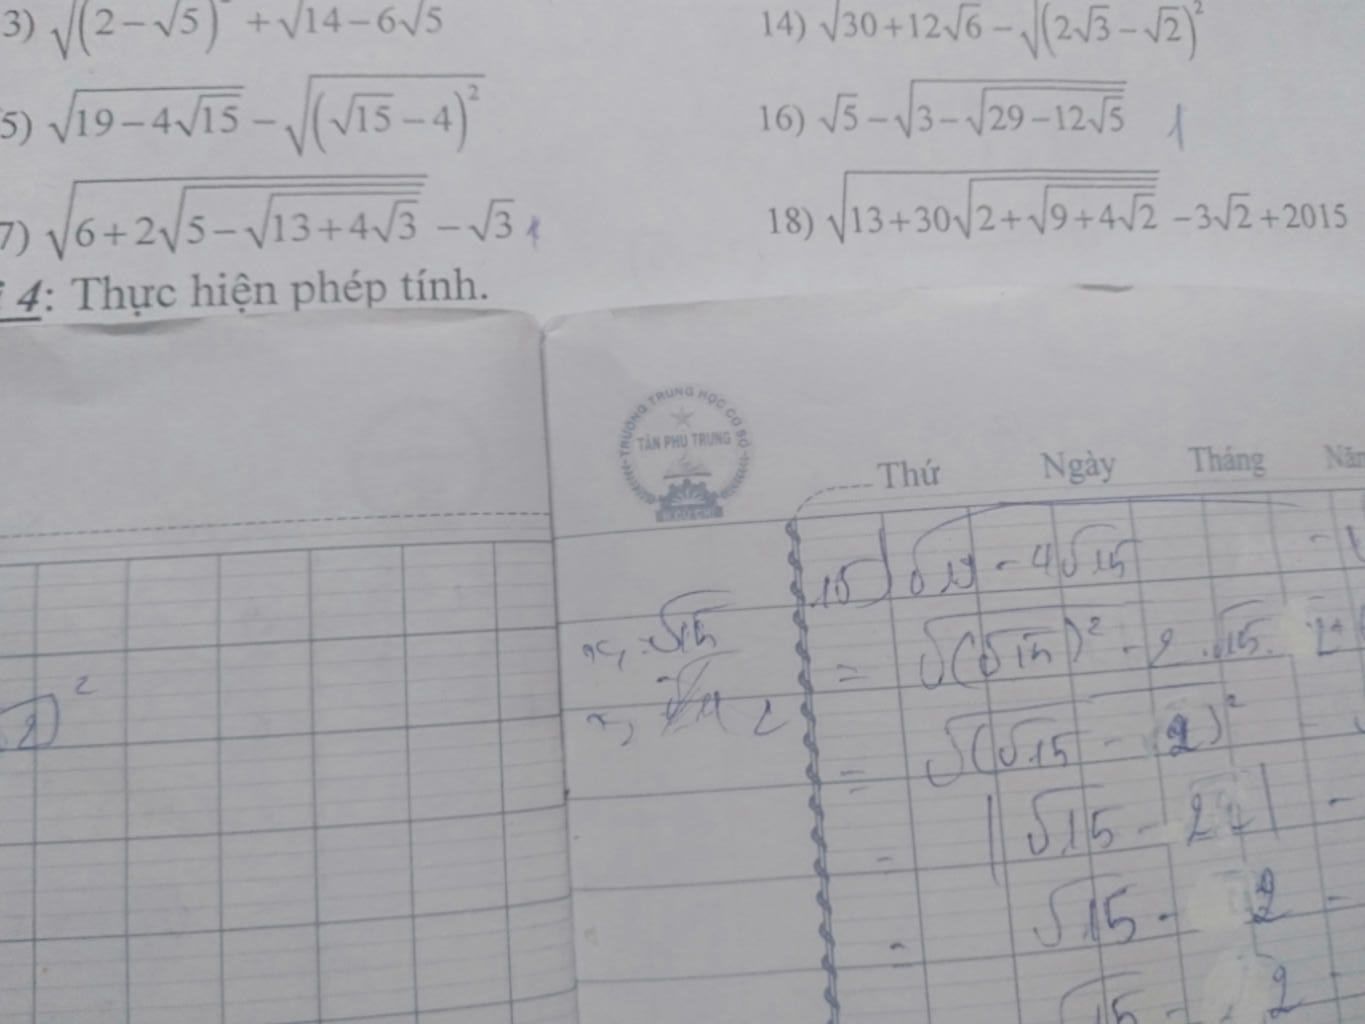 3) √(2−√5)² + √14−6√5
14) √30+12√6 − √(2√3−√2)²
5) √19−4√15 − √(√15−4)²
16) √5−√3−√29−12√5
7) √6+2√5−√13+4√3 − √3
18) √13+30√2+√9+4√2 −3√2+2015
4: Thực hiện phép tính.
TRƯỜNG TRUNG HỌC CƠ SỞ
TÂN PHÚ TRUNG
Thứ Ngày Tháng
15) √19 − 4√15 −
= √(√15)² − 2.√15. 2
2)²
= √(√15 − 2)² −
= |√15 − 2| −
= √15 − 2 −
√15 − 2 −